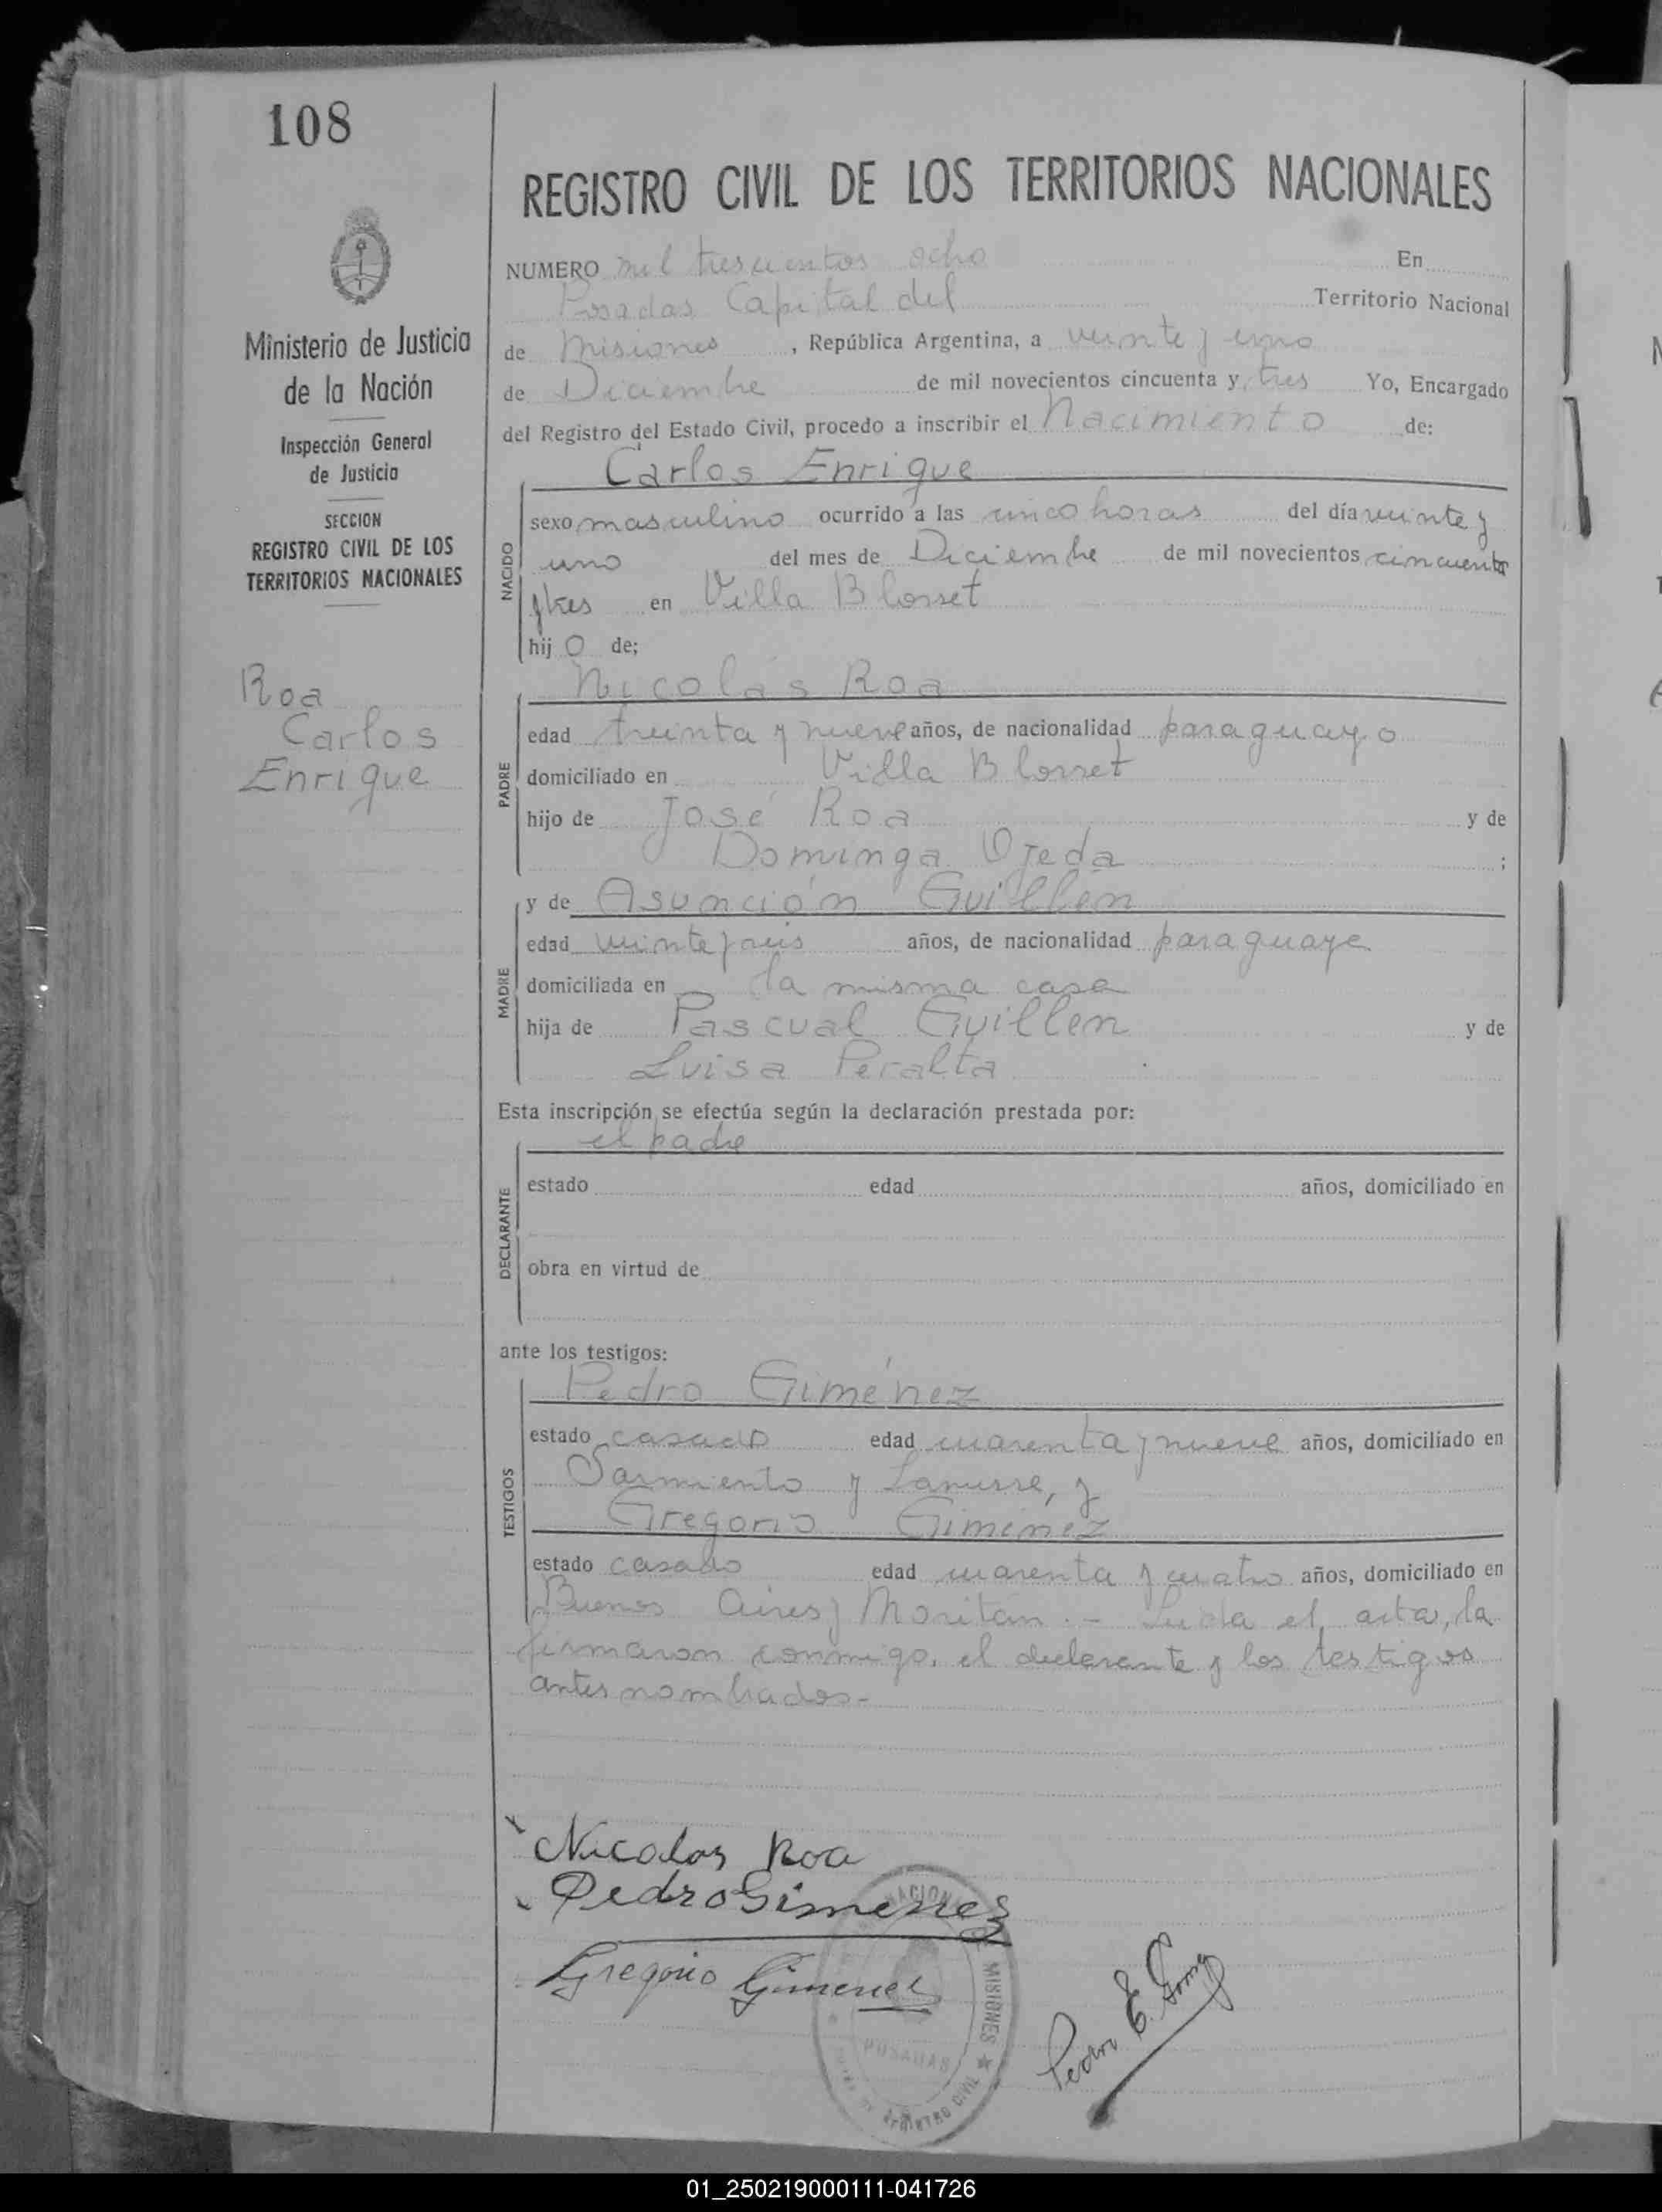 108
Ministerio de Justicia
de la Nación
Inspección General
de Justicia
SECCION
REGISTRO CIVIL DE LOS
TERRITORIOS NACIONALES
Roa
Carlos
Enrique
REGISTRO CIVIL DE LOS TERRITORIOS NACIONALES
NUMERO mil trescientos ocho En
Posadas Capital del Territorio Nacional
de Misiones , República Argentina, a veinte y uno
de Diciembre de mil novecientos cincuenta y tres Yo, Encargado
del Registro del Estado Civil, procedo a inscribir el Nacimiento de:
Carlos Enrique
NACIDO
sexo masculino ocurrido a las cinco horas del día veinte y
uno del mes de Diciembre de mil novecientos cincuenta
y tres en Villa Blosset
hij o de;
Nicolás Roa
PADRE
edad treinta y nueve años, de nacionalidad paraguayo
domiciliado en Villa Blosset
hijo de José Roa y de
Dominga Ojeda ;
y de Asunción Guillén
MADRE
edad veinte y seis años, de nacionalidad paraguaya
domiciliada en la misma casa
hija de Pascual Guillen y de
Luisa Peralta
Esta inscripción se efectúa según la declaración prestada por:
el padre
DECLARANTE
estado edad años, domiciliado en
obra en virtud de
ante los testigos:
Pedro Giménez
TESTIGOS
estado casado edad cuarenta y nueve años, domiciliado en
Sarmiento y Lanusse, y
Gregorio Giménez
estado casado edad cuarenta y cuatro años, domiciliado en
Buenos Aires y Moritán.- Leída el acta, la
firmaron conmigo, el declarante y los testigos
antes nombrados-
Nicolas Roa
Pedro Gimenez
Gregorio Gimenez
Pedro E.
MISIONES
POSADAS
REGISTRO CIVIL
01_250219000111-041726